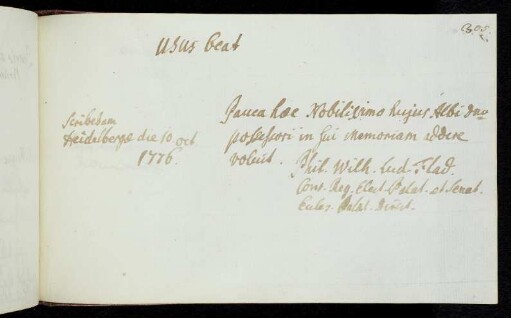 305
Usus beat
Scribebam
Heidelbergæ die 10 oct
1776.
Pauca hæc Nobilissimo hujus Albi dno
possessori in sui memoriam addere
voluit.
Phil. Wilh. Lud. Flad.
Cons. Reg. Elect. Palat. et Senat.
Eccles. Palat. Direct.